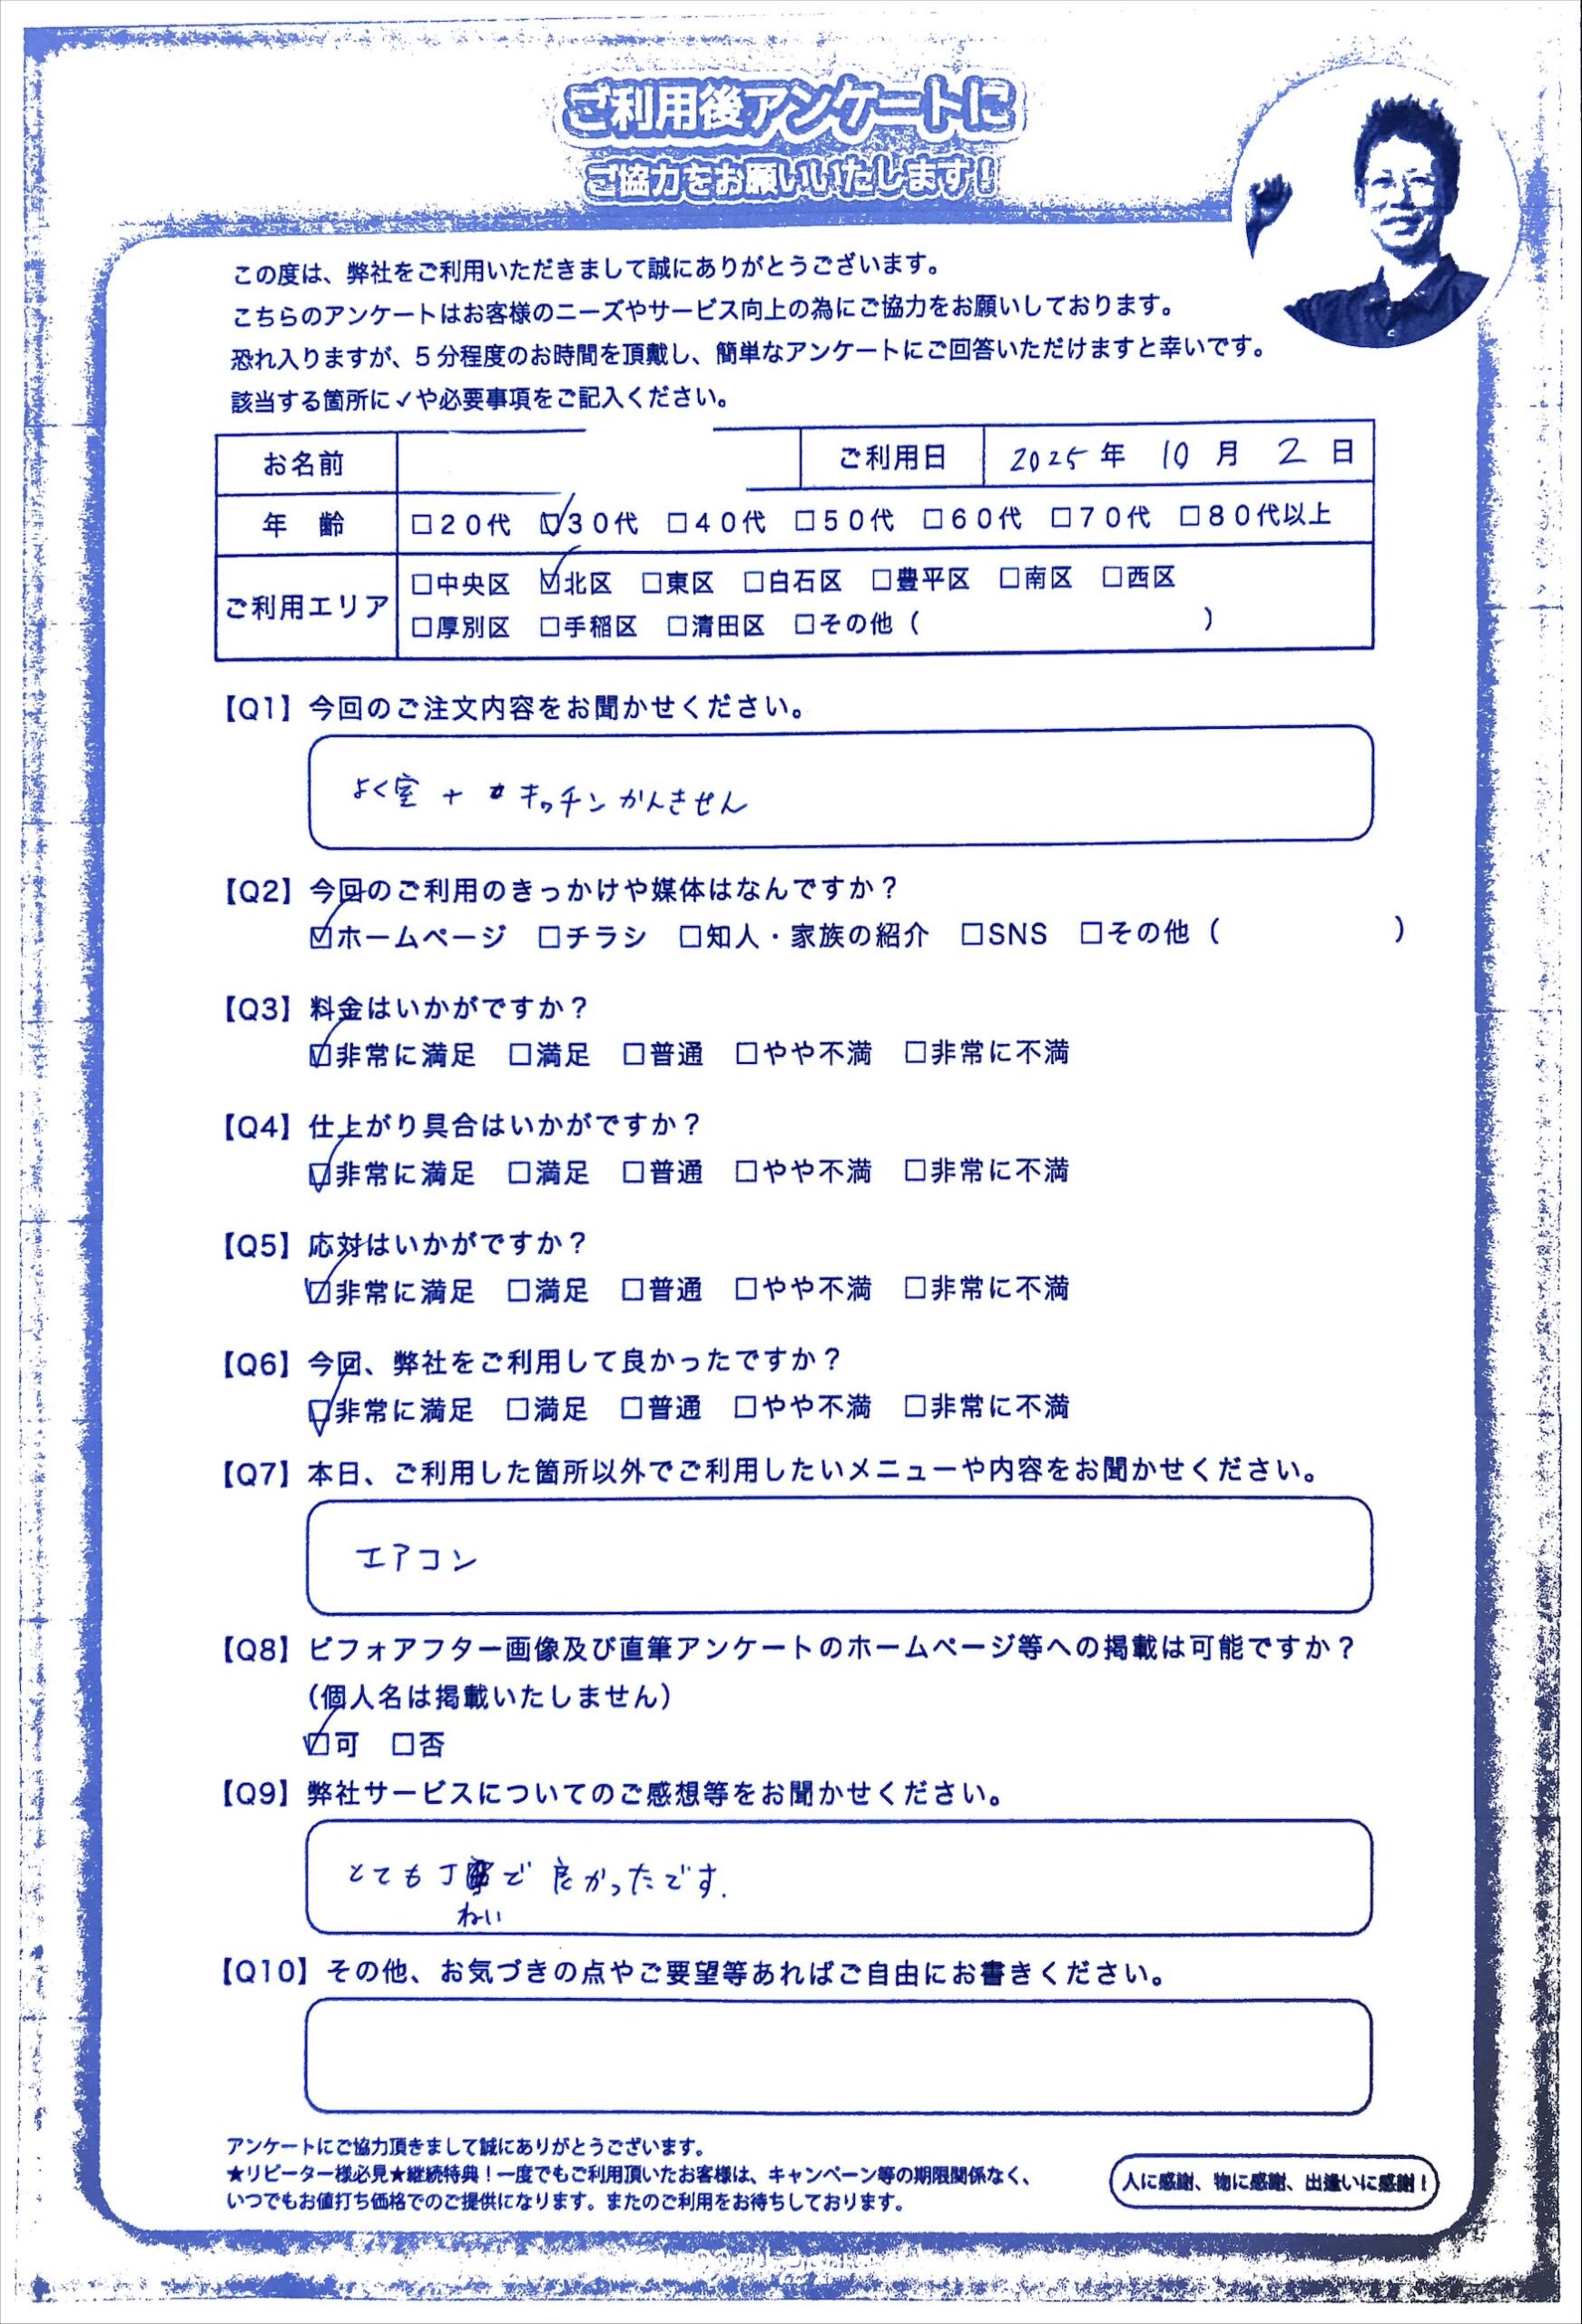 ご利用後アンケートに
ご協力をお願いいたします！
この度は、弊社をご利用いただきまして誠にありがとうございます。
こちらのアンケートはお客様のニーズやサービス向上の為にご協力をお願いしております。
恐れ入りますが、5分程度のお時間を頂戴し、簡単なアンケートにご回答いただけますと幸いです。
該当する箇所に✓や必要事項をご記入ください。
お名前 ご利用日 2025年 10月 2日
年 齢 □20代 ☑30代 □40代 □50代 □60代 □70代 □80代以上
ご利用エリア □中央区 ☑北区 □東区 □白石区 □豊平区 □南区 □西区
□厚別区 □手稲区 □清田区 □その他（ ）
【Q1】今回のご注文内容をお聞かせください。
よく室 + キッチンかんきせん
【Q2】今回のご利用のきっかけや媒体はなんですか？
☑ホームページ □チラシ □知人・家族の紹介 □SNS □その他（ ）
【Q3】料金はいかがですか？
☑非常に満足 □満足 □普通 □やや不満 □非常に不満
【Q4】仕上がり具合はいかがですか？
☑非常に満足 □満足 □普通 □やや不満 □非常に不満
【Q5】応対はいかがですか？
☑非常に満足 □満足 □普通 □やや不満 □非常に不満
【Q6】今回、弊社をご利用して良かったですか？
☑非常に満足 □満足 □普通 □やや不満 □非常に不満
【Q7】本日、ご利用した箇所以外でご利用したいメニューや内容をお聞かせください。
エアコン
【Q8】ビフォアフター画像及び直筆アンケートのホームページ等への掲載は可能ですか？
（個人名は掲載いたしません）
☑可 □否
【Q9】弊社サービスについてのご感想等をお聞かせください。
とても丁で良かったです.
ねい
【Q10】その他、お気づきの点やご要望等あればご自由にお書きください。
アンケートにご協力頂きまして誠にありがとうございます。
★リピーター様必見★継続特典！一度でもご利用頂いたお客様は、キャンペーン等の期限関係なく、
いつでもお値打ち価格でのご提供になります。またのご利用をお待ちしております。
人に感謝、物に感謝、出逢いに感謝！